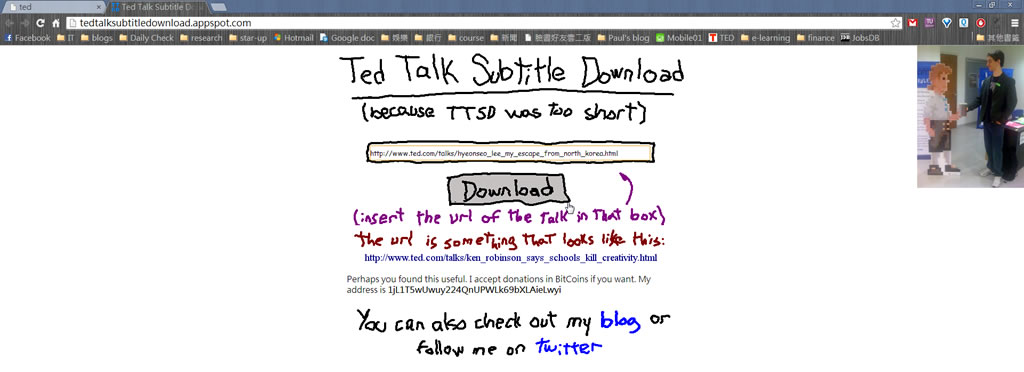 ted
Ted Talk Subtitle Downlo
tedtalksubtitledownload.appspot.com
Facebook IT blogs Daily Check research star-up Hotmail Google doc 娛樂 銀行 course 新聞 臉書好友雲二版 Paul's blog Mobile01 TED e-learning finance JobsDB 其他書籤
Ted Talk Subtitle Download
(because TTSD was too short)
http://www.ted.com/talks/hyeonseo_lee_my_escape_from_north_korea.html
Download
(insert the url of the talk in that box)
the url is something that looks like this:
http://www.ted.com/talks/ken_robinson_says_schools_kill_creativity.html
Perhaps you found this useful. I accept donations in BitCoins if you want. My
address is 1jL1T5wUwuy224QnUPWLk69bXLAieLwyi
You can also check out my blog or
follow me on twitter